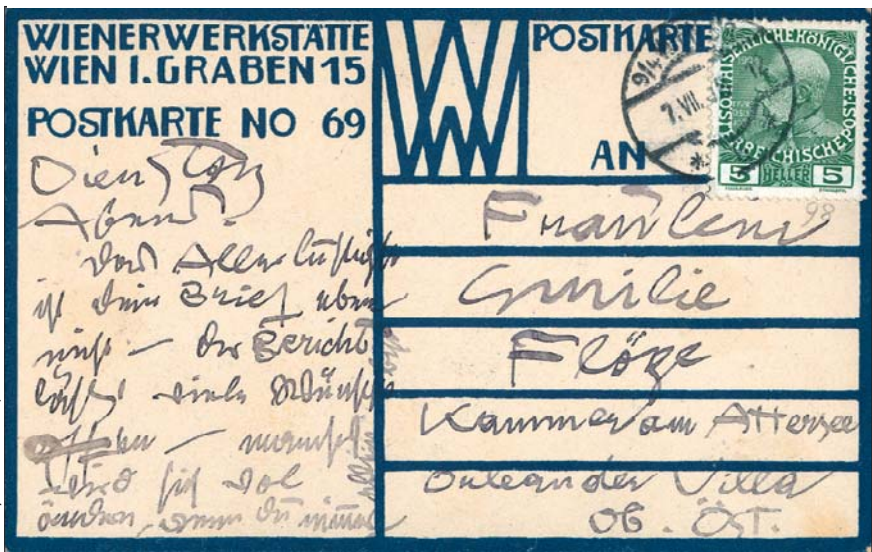 WIENER WERKSTÄTTE
WIEN I. GRABEN 15
POSTKARTE NO 69
Dienstag
Abend!
Das Allerlustigste
ist Dein Brief eben
nicht – der Bericht
läßt viele Wünsche
offen –
wird sich
wenn Du immer
WW
POSTKARTE
AN
7.VII.
KAISERLICHE KÖNIGLICHE
ÖSTERREICHISCHE POST
5 HELLER 5
98
Fräulein
Emilie
Flöge
Kammer am Attersee
Ouleander Villa
Ob. Öst.